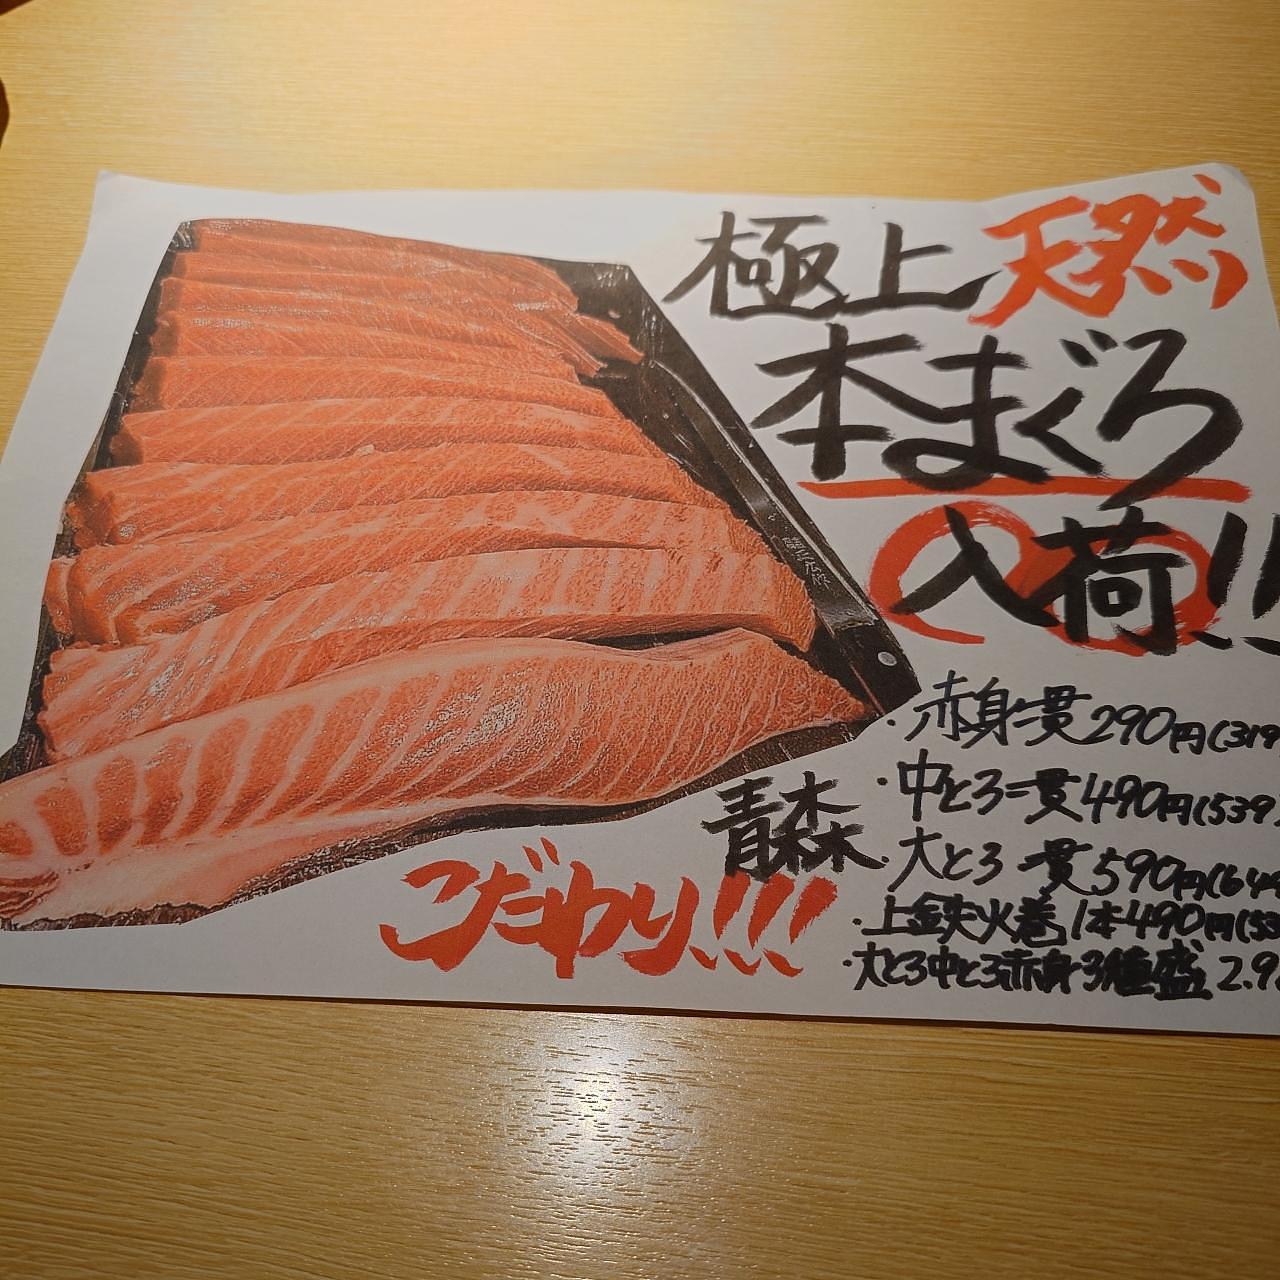 極上天然
本まぐろ
入荷!!
・赤身一貫290円(319
・中とろ一貫490円(539
・大とろ 一貫590円(649
・上鉄火巻 1本490円(53
・大とろ中とろ赤身3種盛 2.9
青森
こだわり!!!